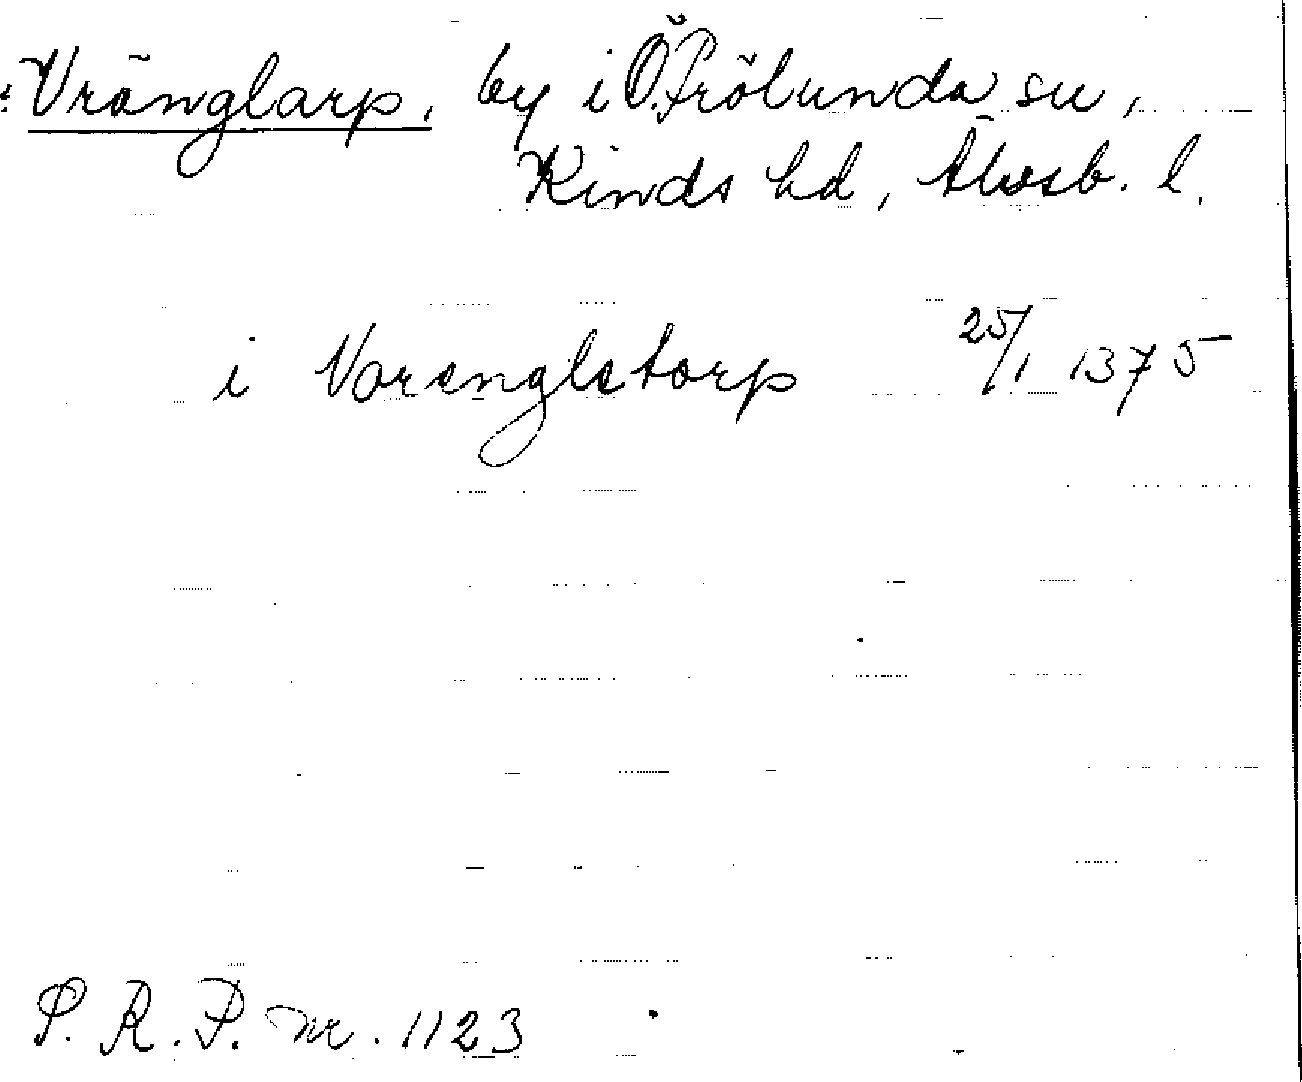 Vränglarp, by i Ö. Frölunda sn,
Kinds hd, Älvsb. l.
i Voranglstorp 25/1 1375
S. R. P. nr. 1123